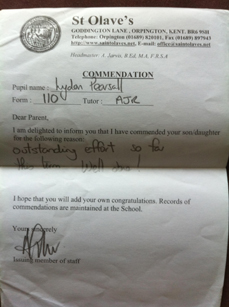 St Olave's
GODDINGTON LANE, ORPINGTON, KENT. BR6 9SH
Telephone: Orpington (01689) 820101, Fax (01689) 897943
http://www.saintolaves.net, E-mail: office@saintolaves.net
Headmaster: A. Jarvis, B.Ed, M.A, F.R.S.A
COMMENDATION
Pupil name : Lydan Pearsall
Form : 110 Tutor : AJR
Dear Parent,
I am delighted to inform you that I have commended your son/daughter
for the following reason:
outstanding effort so far
this term. Well done!
I hope that you will add your own congratulations. Records of
commendations are maintained at the School.
Yours sincerely
Issuing member of staff